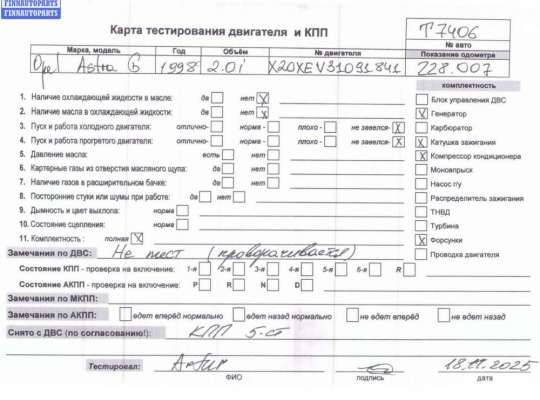 FINNAUTOPARTS
FINNAUTOPARTS
Карта тестирования двигателя и КПП
T7406
№ авто
Марка, модель Год Объём № двигателя Показание одометра
Opel Astra G 1998 2.0i X20XEV31091841 228.007
комплектность
1. Наличие охлаждающей жидкости в масле: да нет X
Блок управления ДВС
2. Наличие масла в охлаждающей жидкости: да нет X
X Генератор
3. Пуск и работа холодного двигателя: отлично- норма - плохо - не завелся- X
Карбюратор
4. Пуск и работа прогретого двигателя: отлично- норма - плохо - не завелся- X
X Катушка зажигания
5. Давление масла: есть нет
X Компрессор кондиционера
6. Картерные газы из отверстия масляного щупа: да нет
Моновпрыск
7. Наличие газов в расширительном бачке: да нет
Насос г/у
8. Посторонние стуки или шумы при работе: да нет
Распределитель зажигания
9. Дымность и цвет выхлопа: норма
ТНВД
10. Состояние сцепления: норма
Турбина
11. Комплектность : полная X
X Форсунки
Замечания по ДВС: Не тест (проворачивается)
Проводка двигателя
Состояние КПП - проверка на включение: 1-я 2-я 3-я 4-я 5-я 6-я R
Состояние АКПП - проверка на включение: P R N D
Замечания по МКПП:
Замечания по АКПП: едет вперёд нормально едет назад нормально не едет вперёд не едет назад
Снято с ДВС (по согласованию!): КПП 5-ст
Тестировал: Artur 18.11.2025
ФИО подпись дата